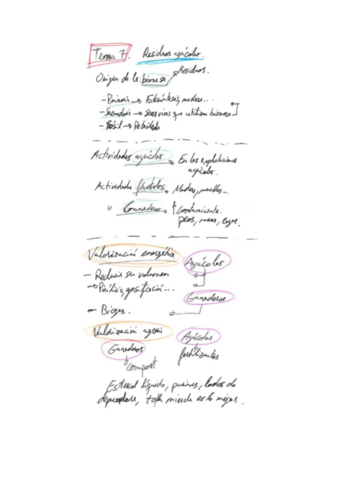 Tema 7. Residuos agrícolas
Origen de la biomasa Residuos.
- Primaria → Fotosíntesis, madera...
- Secundaria → seres vivos que utilizan biomasa
- Fósil → Petróleo
Actividades agrícolas → En las explotaciones agrícolas.
Actividades forestales → Madera, muebles...
" Ganaderas → ↑ Contaminante.
Valorización energética Agrícolas
- Reducir su volumen
→ Pirólisis, gasificación...
Ganaderos
- Biogas.
Valorización agraria Agrícolas
Ganaderos fertilizantes
compost
Estiércol líquido, purines, lodos de
depuradora, toda mierda es lo mejor.